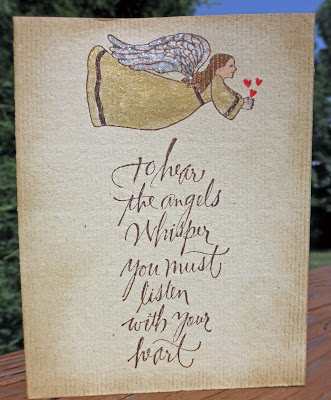 To hear
the angels
Whisper
you must
listen
with your
heart